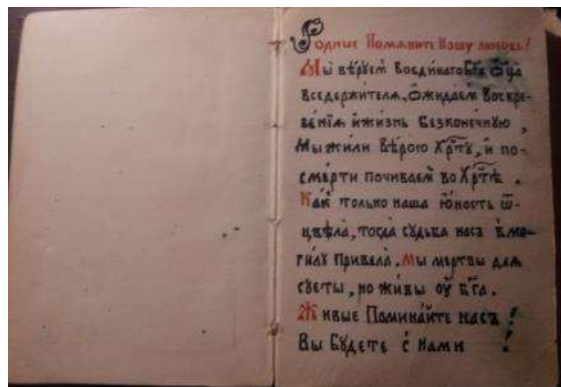 Родные Помяните Нашу любовь!
Мы вѣруем Воединаго Бг҃а Ѻц҃а
вседержителя, Ѻжидаем Воскре-
сенїя ижизнь Безконечную,
Мы жили Вѣрою Хрт҃у, и по-
смерти почиваем во Хрт҃ѣ.
Как только наша юность ѿ-
цвѣла, тогда судьба насъ Вмо-
гилу Привела. Мы мертвы для
суеты, но живы оу Бг҃а.
Живые Поминайте насъ!
Вы Будете с Нами !